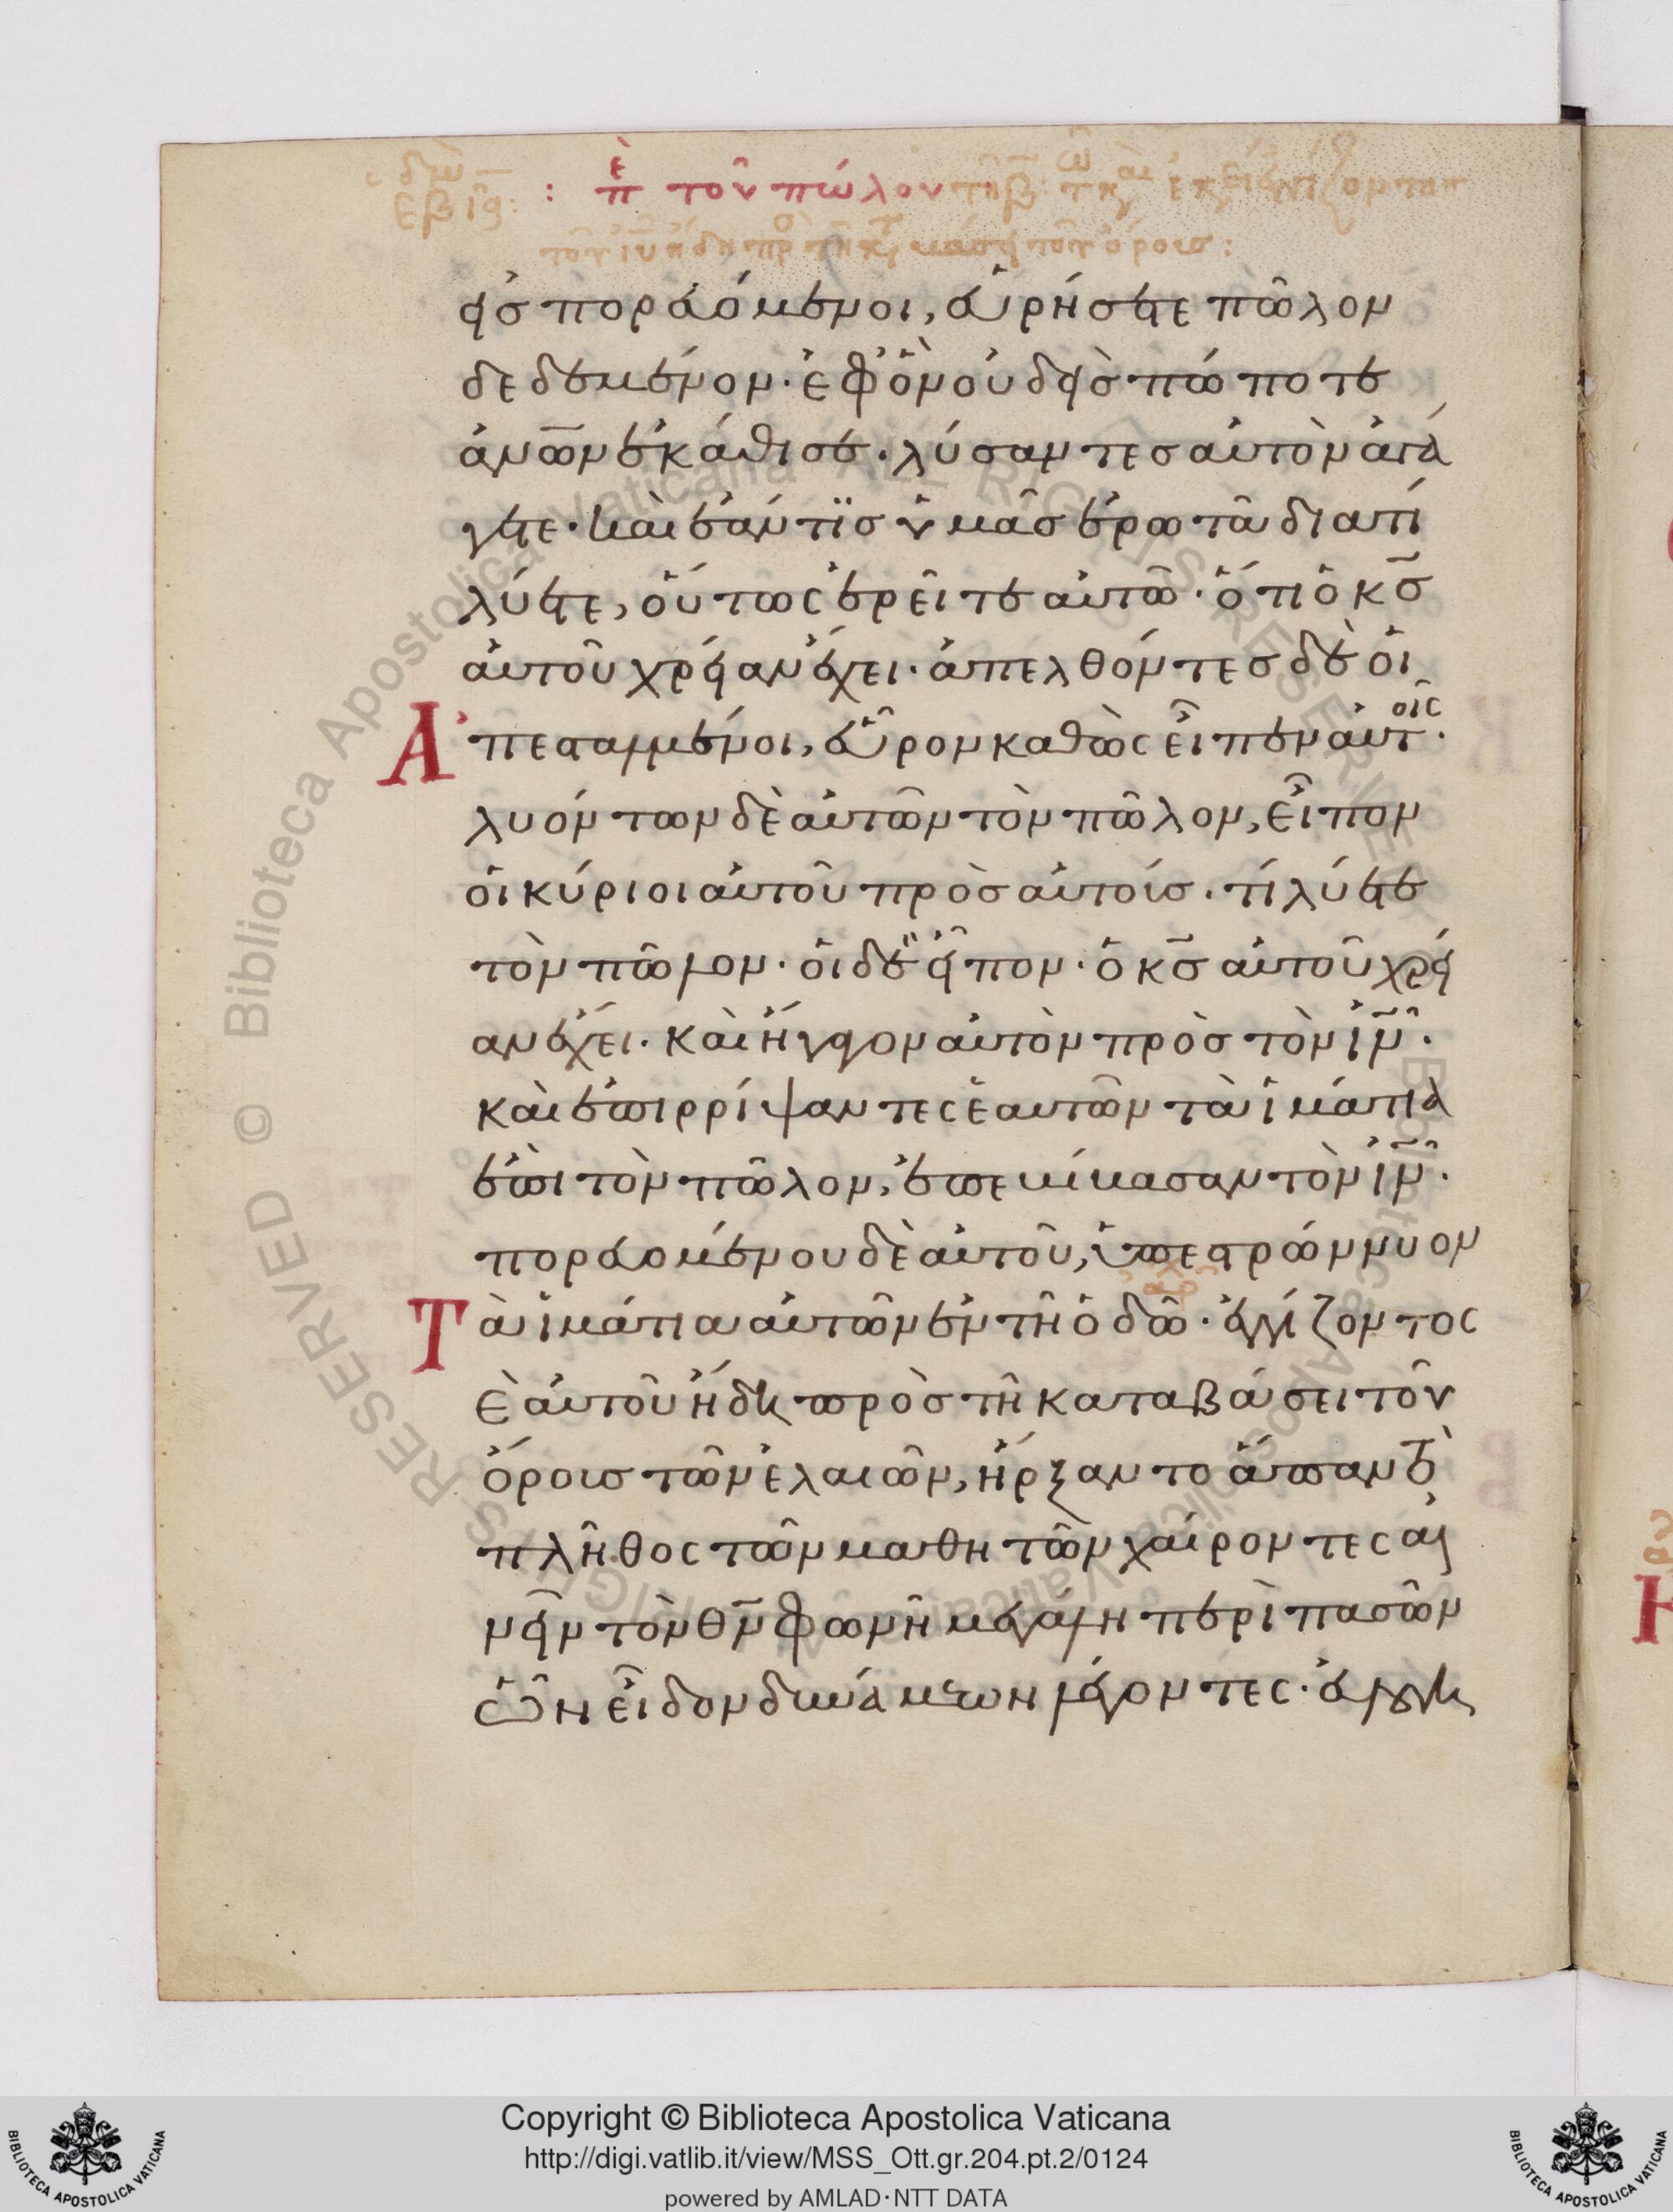 : πὲ τοῦ πώλου
εἰσπορευόμενοι, εὑρήσετε πῶλον
δεδεμένον· ἐφ' ὃν οὐδεὶς πώποτε
ἀν̅ω̅ν ἐκάθισε· λύσαντες αὐτὸν ἀγά
γετε· καὶ ἐάν τις ὑμᾶς ἐρωτᾶ διατί
λύετε, οὕτως ἐρεῖτε αὐτῶ· ὅτι ὁ κ̅ς̅
αὐτοῦ χρείαν ἔχει· ἀπελθόντες δὲ οἱ
Ἀπεσταλμένοι, εὗρον καθὼς εἶπεν αὐτοῖς·
λυόντων δὲ αὐτῶν τὸν πῶλον, εἶπον
οἱ κύριοι αὐτοῦ πρὸς αὐτούς· τί λύετε
τὸν πῶλον· οἱ δὲ εἶπον· ὁ κ̅ς̅ αὐτοῦ χρεί
αν ἔχει· καὶ ἤγαγον αὐτὸν πρὸς τὸν ἰ̅ν̅·
καὶ ἐπιρρίψαντες ἑαυτῶν τὰ ἱμάτια
ἐπὶ τὸν πῶλον, ἐπεβίβασαν τὸν ἰ̅ν̅·
πορευομένου δὲ αὐτοῦ, ὑπεστρώννυον
Τὰ ἱμάτια αὐτῶν ἐν τῆ ὁδῶ· ἐγγίζοντος
δὲ αὐτοῦ ἤδη πρὸς τῆ καταβάσει τοῦ
ὄρους τῶν ἐλαιῶν, ἤρξαντο ἅπαν τὸ
πλῆθος τῶν μαθητῶν χαίροντες αἰ
νεῖν τὸν θ̅ν̅ φωνῆ μεγάλη περὶ πασῶν
ὧν εἶδον δυνάμεων λέγοντες· εὐλογη
Copyright © Biblioteca Apostolica Vaticana
http://digi.vatlib.it/view/MSS_Ott.gr.204.pt.2/0124
powered by AMLAD·NTT DATA
BIBLIOTECA APOSTOLICA VATICANA
BIBLIOTECA APOSTOLICA VATICANA